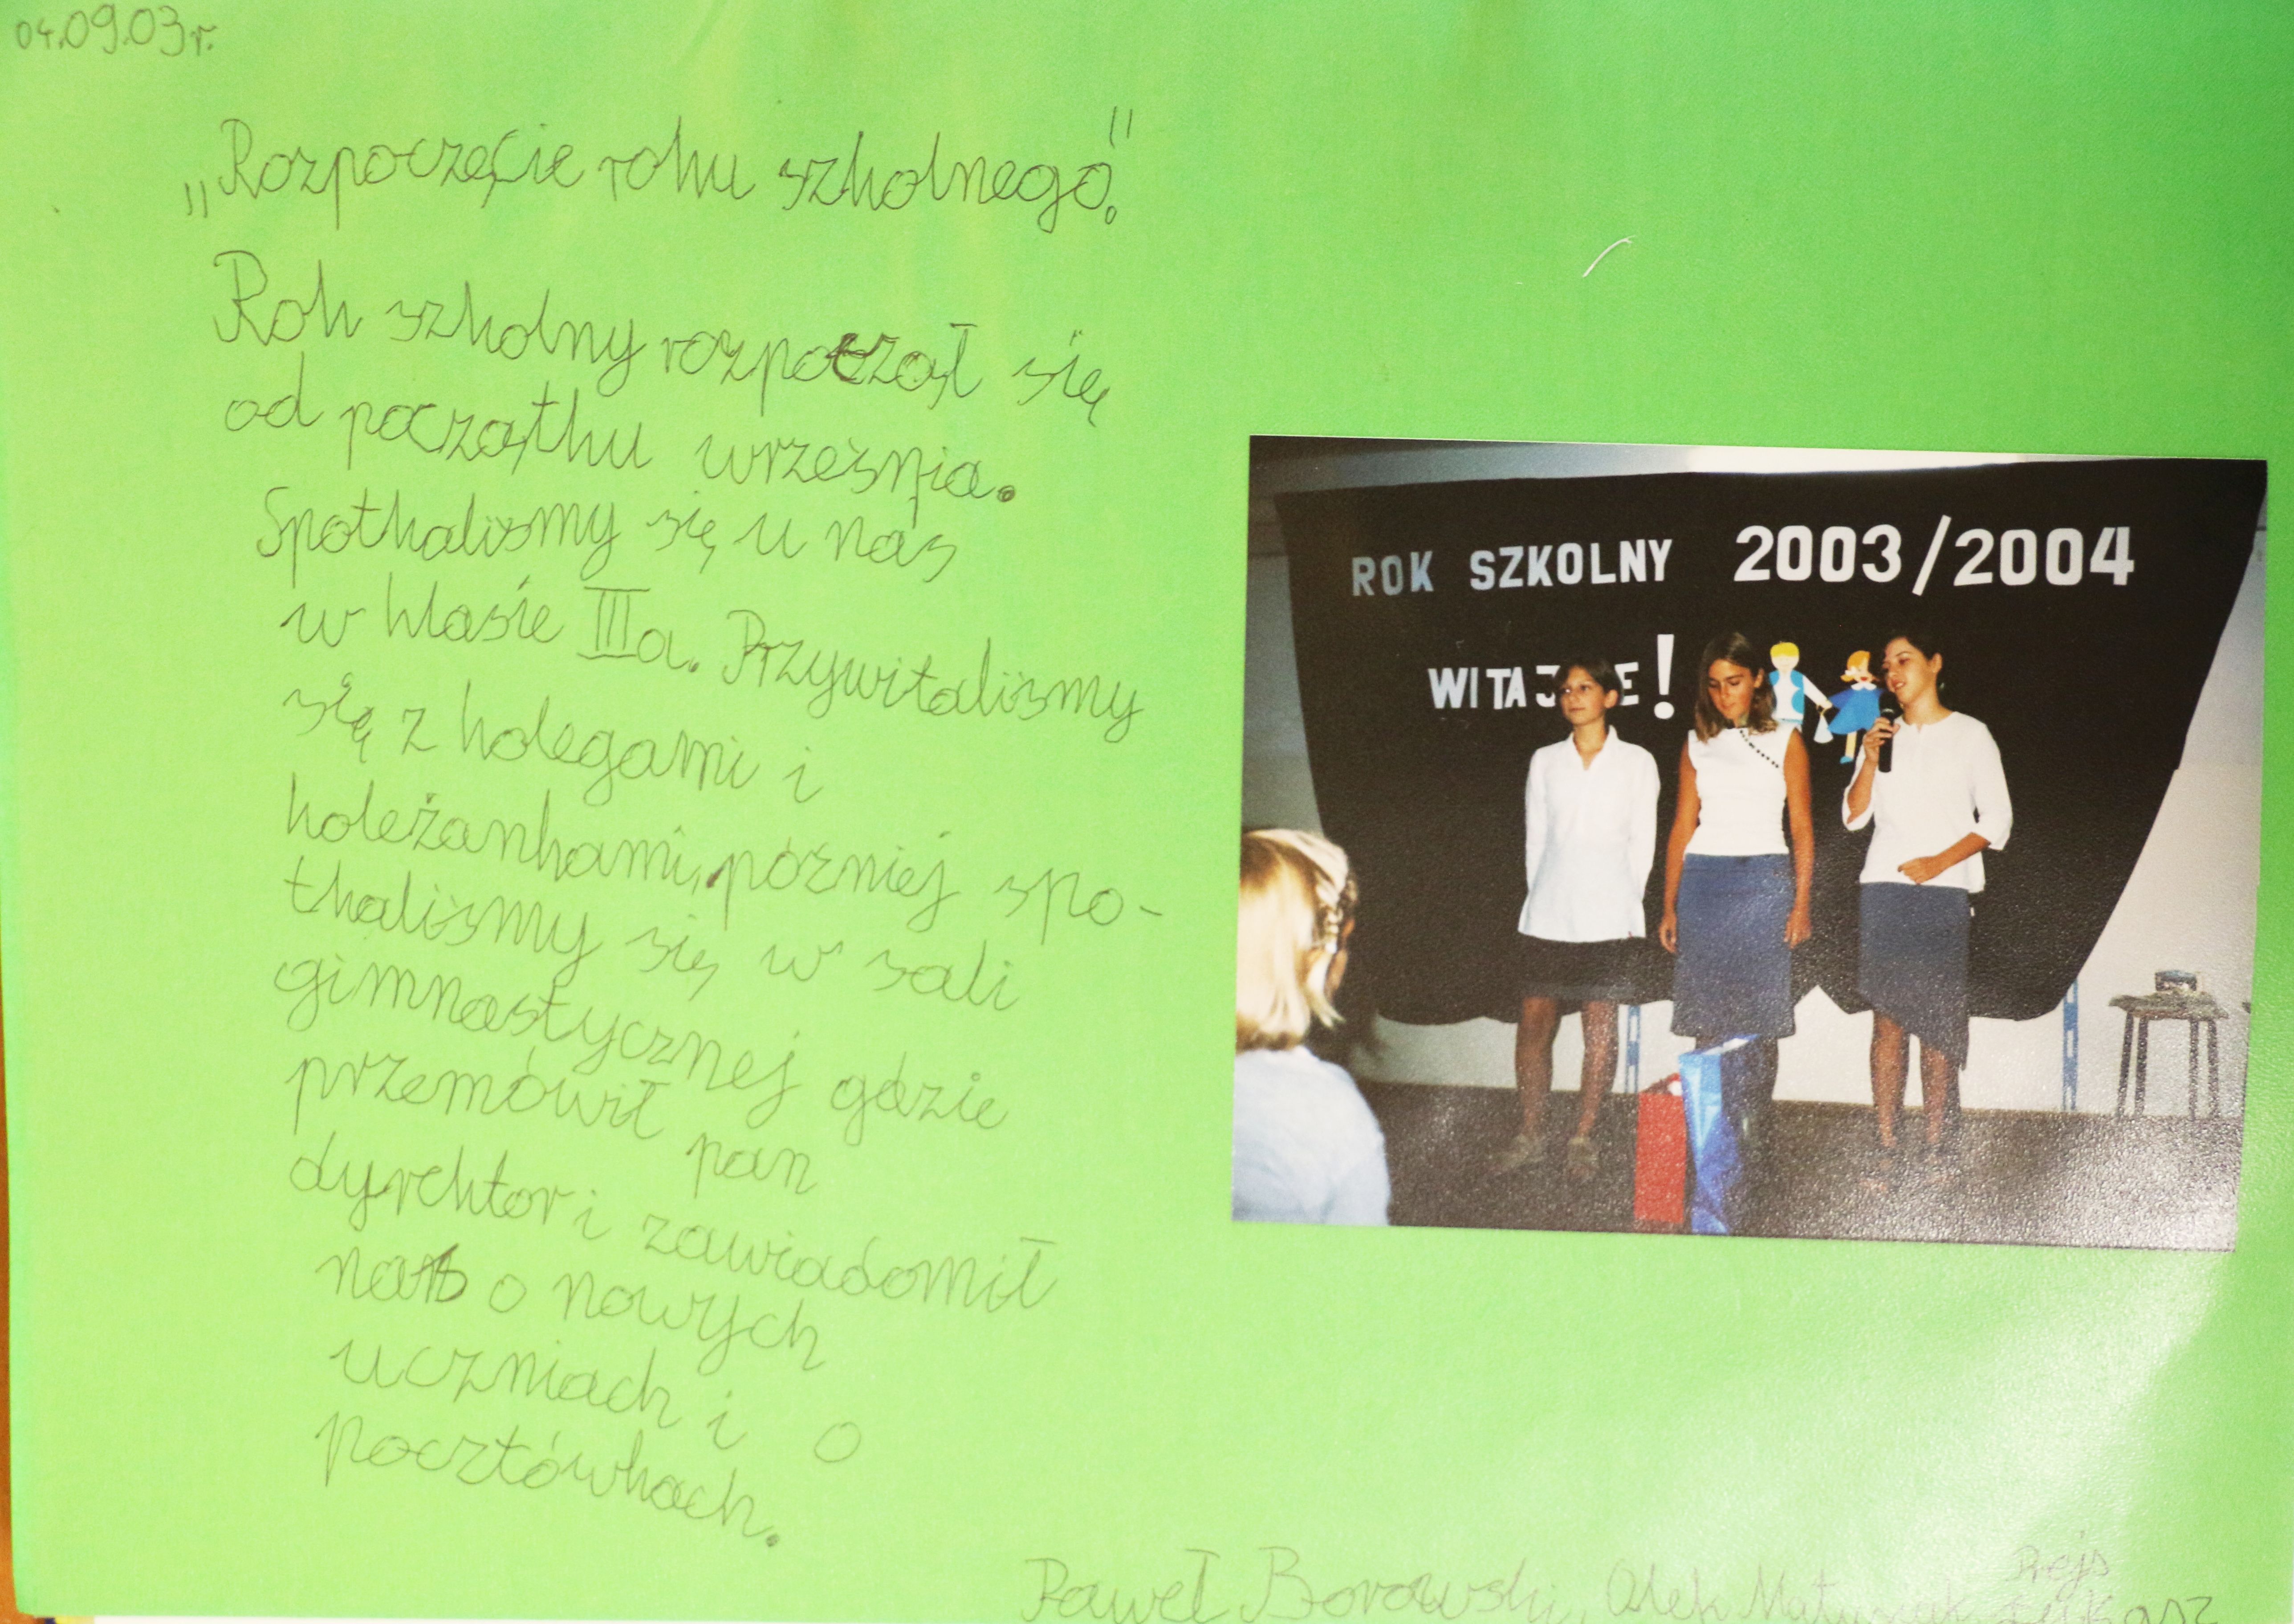 04.09.03r.
„Rozpoczęcie roku szkolnego."
Rok szkolny rozpoczął się
od początku września.
Spotkaliśmy się u nas
w klasie IIIa. Przywitaliśmy
się z kolegami i
koleżankami, później spo-
tkaliśmy się w sali
gimnastycznej gdzie
przemówił pan
dyrektor i zawiadomił
nas o nowych
uczniach i o
pocztówkach.
ROK SZKOLNY 2003/2004
WITAJ E!
Paweł Borowski, Olek
Rejs
Łukasz